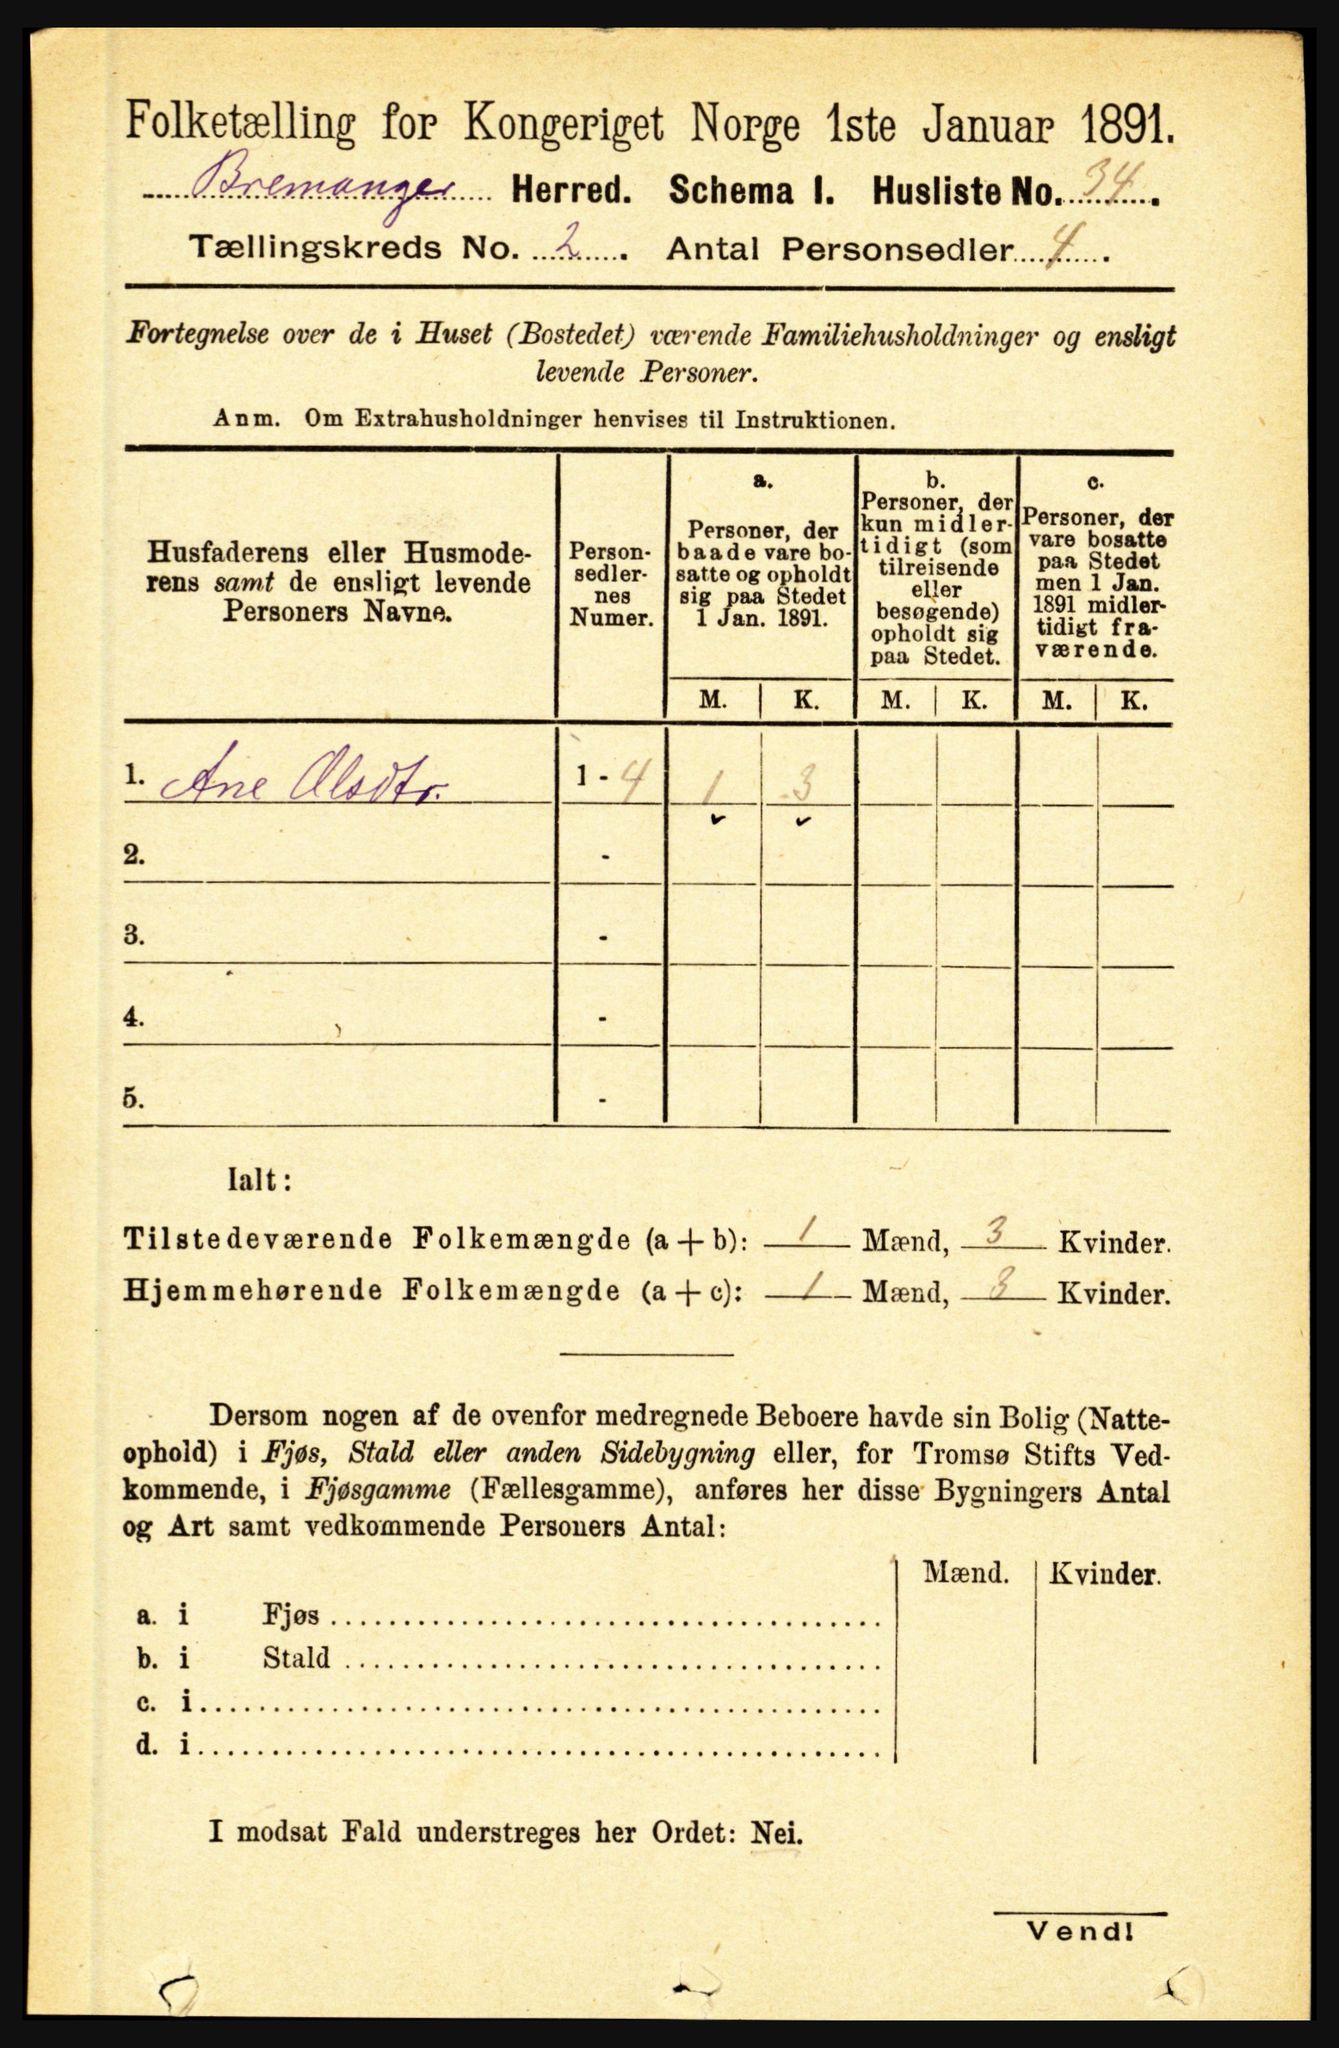 Folketælling for Kongeriget Norge 1ste Januar 1891.
Bremanger Herred. Schema I. Husliste No. 34.
Tællingskreds No. 2. Antal Personsedler 4.
Fortegnelse over de i Huset (Bostedet) værende Familiehusholdninger og ensligt
levende Personer.
Anm. Om Extrahusholdninger henvises til Instruktionen.
Husfaderens eller Husmode-
rens samt de ensligt levende
Personers Navne.
Person-
sedler-
nes
Numer.
a.
Personer, der
baade vare bo-
satte og opholdt
sig paa Stedet
1 Jan. 1891.
b.
Personer, der
kun midler-
tidigt (som
tilreisende
eller
besøgende)
opholdt sig
paa Stedet.
c.
Personer, der
vare bosatte
paa Stedet
men 1 Jan.
1891 midler-
tidigt fra-
værende.
M. K. M. K. M. K.
1. Ane Olsdtr. 1 - 4 1 3
2. -
3. -
4. -
5. -
Ialt:
Tilstedeværende Folkemængde (a + b): 1 Mænd, 3 Kvinder.
Hjemmehørende Folkemængde (a + c): 1 Mænd, 3 Kvinder.
Dersom nogen af de ovenfor medregnede Beboere havde sin Bolig (Natte-
ophold) i Fjøs, Stald eller anden Sidebygning eller, for Tromsø Stifts Ved-
kommende, i Fjøsgamme (Fællesgamme), anføres her disse Bygningers Antal
og Art samt vedkommende Personers Antal:
Mænd. Kvinder.
a. i Fjøs
b. i Stald
c. i
d. i
I modsat Fald understreges her Ordet: Nei.
Vend!